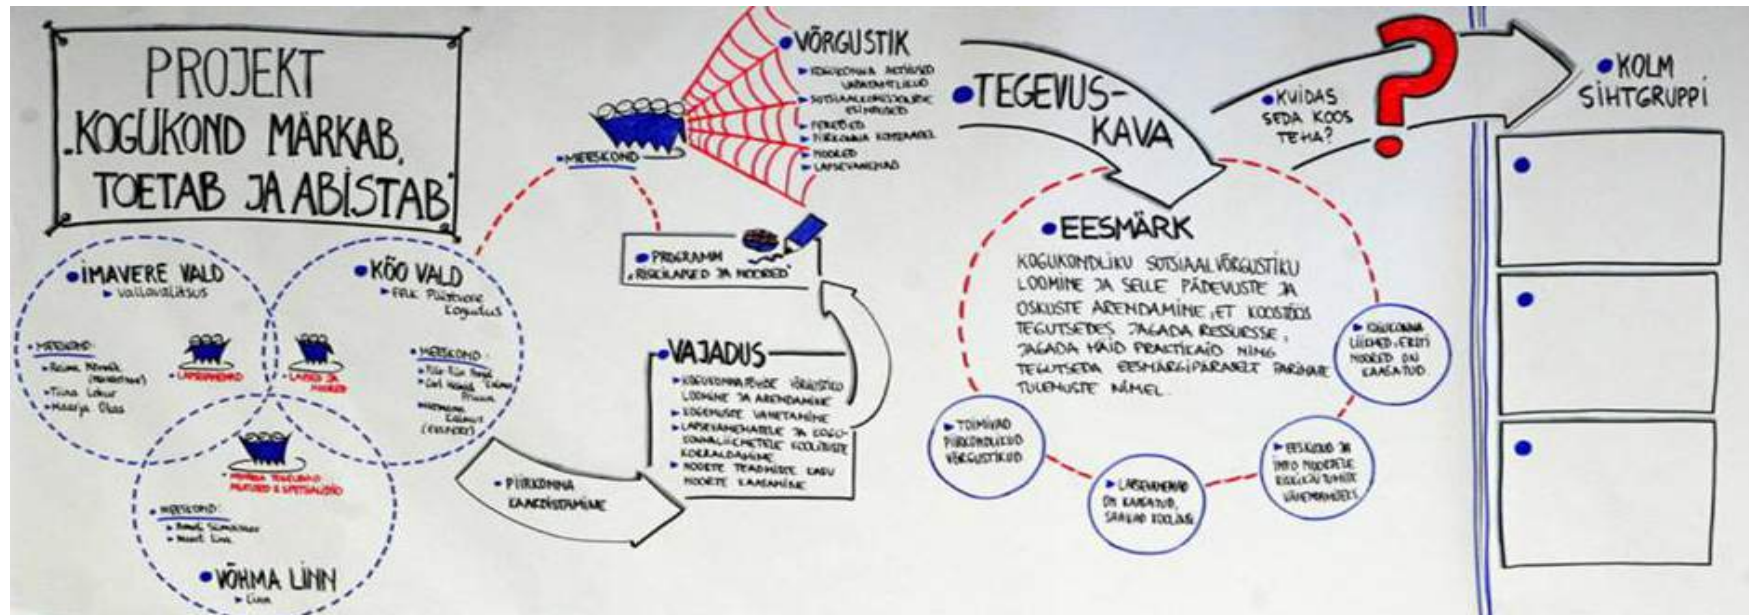 PROJEKT
„KOGUKOND MÄRKAB,
TOETAB JA ABISTAB"
IMAVERE VALD
VALLAVALITSUS
MEESKOND:
Tiina
Maarja
LAPSEVANEMAD
KÕO VALD
EELK
Kogudus
LAPSED JA
NOORED
MEESKOND:
MEESKOND:
VÕHMA LINN
LINN
MEESKOND
VÕRGUSTIK
KOGUKONNA AKTIIVSED
VABATAHTLIKUD
ESINDUSED
PEREARSTID
PIIRKONNA KONSTAABEL
NOORED
LAPSEVANEMAD
PROGRAMM
„RISKILAPSED JA NOORED"
VAJADUS
VÕRGUSTIKU
LOOMINE JA ARENDAMINE
KOGEMUSTE VAHETAMINE
LAPSEVANEMATELE JA KOGU-
KONNALIIKMETELE KOOLITUSTE
KORRALDAMINE
NOORTE TEADMISTE KASV
NOORTE KAASAMINE
PIIRKONNA
KAARDISTAMINE
TEGEVUS-
KAVA
KUIDAS
SEDA KOOS
TEHA?
?
EESMÄRK
KOGUKONDLIKU SOTSIAALVÕRGUSTIKU
LOOMINE JA SELLE PÄDEVUSTE JA
OSKUSTE ARENDAMINE, ET KOOSTÖÖS
TEGUTSEDES JAGADA RESSURSSE,
JAGADA HÄID PRAKTIKAID NING
TEGUTSEDA EESMÄRGIPÄRASELT PARIMATE
TULEMUSTE NIMEL.
TOIMIVAD
PIIRKONDLIKUD
VÕRGUSTIKUD
LAPSEVANEMAD
ON KAASATUD,
SAAVAD KOOLITUSI
EESKUJUD JA
INFO NOORTELE
RISKIKÄITUMISE
VÄHENDAMISEKS
KOGUKONNA
LIIKMED, ERITI
NOORED ON
KAASATUD
KOLM
SIHTGRUPPI